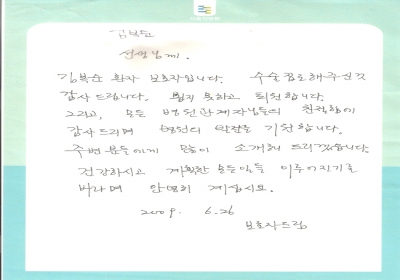 김복순
선생님께.
김복순 환자 보호자입니다. 수술 잘 해주신것
감사드립니다. 뵙지 못하고 퇴원합니다.
그리고, 모든 병원관계자님들의 친절함에
감사드리며 병원의 발전을 기원합니다.
주변분들에게 많이 소개해 드리겠습니다.
건강하시고 계획한 모든일들 이루어지기를
바라며 안녕히 계십시요.
2009. 6.26
보호자드림